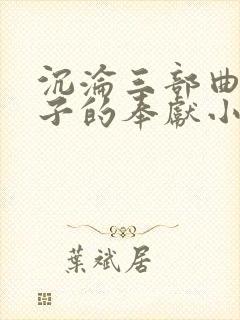 沉淪三部曲
子的奉獻小
葉斌居